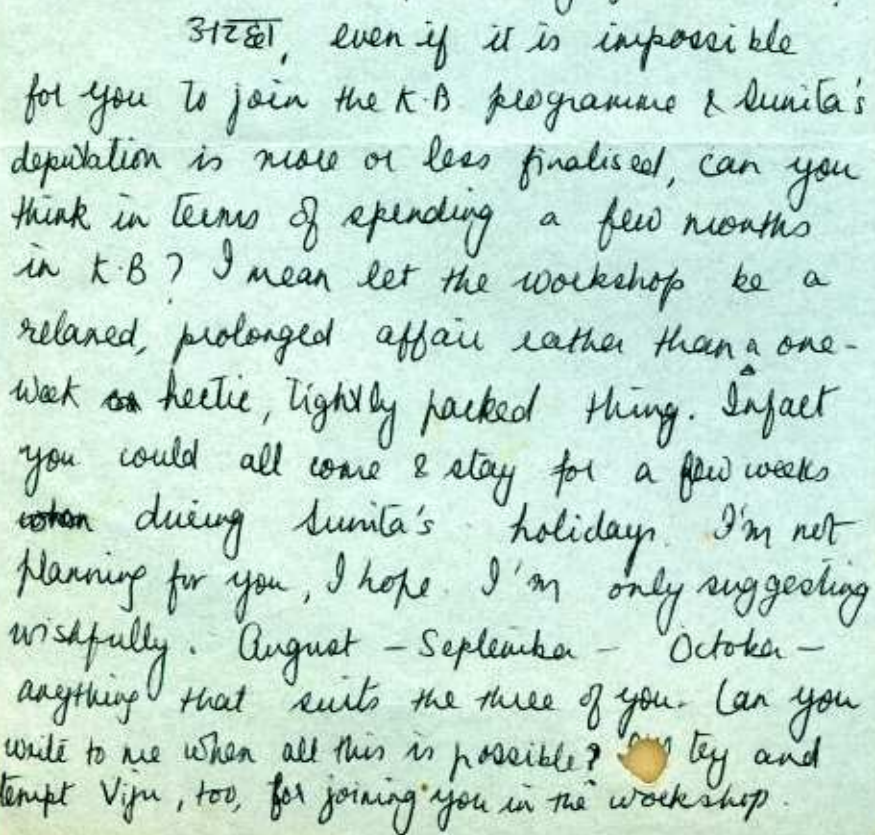 अच्छा, even if it is impossible
for you to join the K.B programme & Sunita's
deputation is more or less finalised, can you
think in terms of spending a few months
in K.B? I mean let the workshop be a
relaxed, prolonged affair rather than a one-
week hectic, tightly packed thing. Infact
you could all come & stay for a few weeks
during Sunita's holidays. I'm not
planning for you, I hope. I'm only suggesting
wishfully. August - September - October -
anything that suits the three of you. Can you
write to me when all this is possible? try and
tempt Viju, too, for joining you in the workshop.